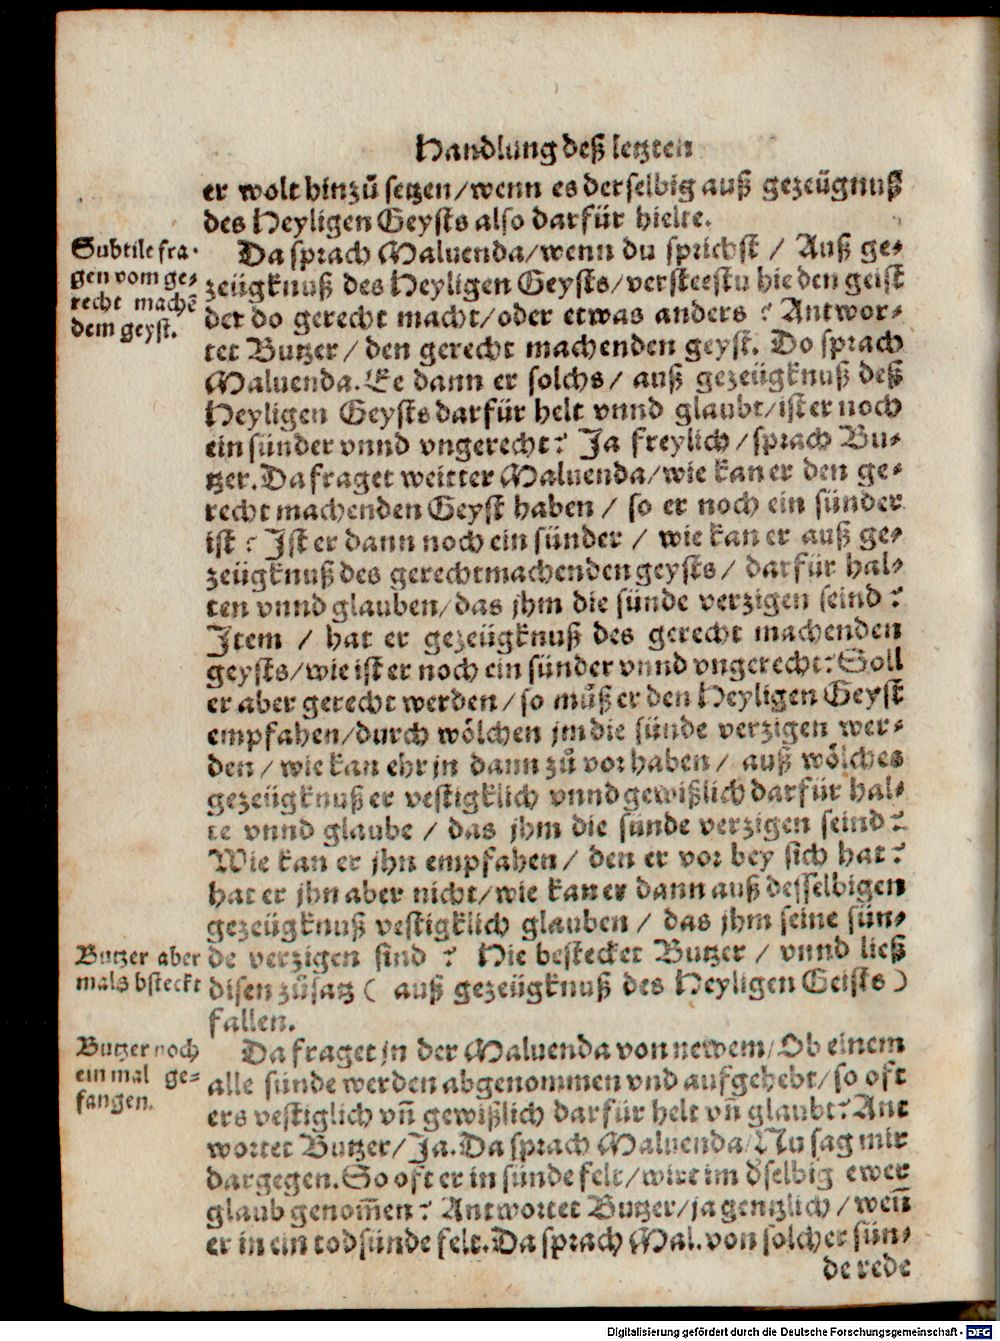 Handlung deß letzten
er wolt hinzů setzen/wenn es derselbig auß gezeügnuß
des Heyligen Geysts also darfür hielte.
Subtile fra-
gen vom ge-
recht machẽ
dem geyst.
Da sprach Maluenda/wenn du sprichst / Auß ge-
zeügknuß des Heyligen Geysts/versteestu hie den geist
der do gerecht macht/oder etwas anders ? Antwor-
tet Butzer / den gerecht machenden geyst. Do sprach
Maluenda. Ee dann er solchs / auß gezeügknuß deß
Heyligen Geysts darfür helt vnnd glaubt/ist er noch
ein sünder vnnd vngerecht? Ja freylich/sprach Bu-
tzer. Da fraget weitter Maluenda/wie kan er den ge-
recht machenden Geyst haben / so er noch ein sünder
ist ? Ist er dann noch ein sünder / wie kan er auß ge-
zeügknuß des gerechtmachenden geysts/ darfür hal-
ten vnnd glauben/das jhm die sünde verzigen seind ?
Item / hat er gezeügknuß des gerecht machenden
geysts/wie ist er noch ein sünder vnnd vngerecht? Soll
er aber gerecht werden/so můß er den Heyligen Geyst
empfahen/durch wölchen jm die sünde verzigen wer-
den/wie kan ehr jn dann zů vor haben/ auß wölches
gezeügknuß er vestigklich vnnd gewißlich darfür hal-
te vnnd glaube / das jhm die sünde verzigen seind ?
Wie kan er jhn empfahen/ den er vor bey sich hat ?
hat er jhn aber nicht/wie kan er dann auß desselbigen
gezeügknuß vestigklich glauben / das jhm seine sün-
Butzer aber
mals bsteckt
de verzigen sind ? Hie bestecket Butzer / vnnd ließ
disen zůsatz ( auß gezeügknuß des Heyligen Geists )
fallen.
Butzer noch
ein mal ge-
fangen.
Da fraget jn der Maluenda von newem/Ob einem
alle sünde werden abgenommen vnd aufgehebt/so oft
ers vestiglich vñ gewißlich darfür helt vñ glaubt? Ant
wortet Butzer/Ja. Da sprach Maluenda/Nu sag mir
dargegen. So oft er in sünde felt/wirt im d'selbig ewer
glaub genom̃en ? Antwortet Butzer/ja gentzlich/weñ
er in ein todsünde felt. Da sprach Mal. von solcher sün-
de rede
Digitalisierung gefördert durch die Deutsche Forschungsgemeinschaft - DFG